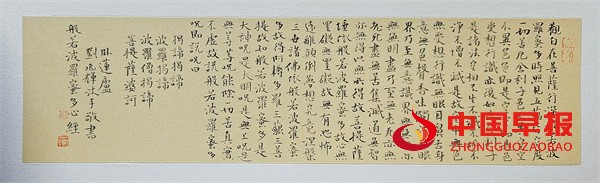 觀自在菩薩行深般若波
羅蜜多時照見五蘊皆空度
一切苦厄舍利子色不異空空
不異色色即是空空即是色
受想行識亦復如是舍利子
是諸法空相不生不滅不垢不
淨不增不減是故空中無色
無受想行識無眼耳鼻舌身
意無色聲香味觸法無眼
界乃至無意識界無無明亦
無無明盡乃至無老死亦無
老死盡無苦集滅道無智亦
無得以無所得故菩提薩
埵依般若波羅蜜多故心無
罣礙無罣礙故無有恐怖
遠離顛倒夢想究竟涅槃
三世諸佛依般若波羅蜜
多故得阿耨多羅三藐三菩
提故知般若波羅蜜多是
大神咒是大明咒是無上咒是
無等等咒能除一切苦真實
不虛故說般若波羅蜜多
咒即說咒曰
揭諦揭諦
波羅揭諦
波羅僧揭諦
菩提薩婆訶
卧蓮廬
劉兆輝沐手敬書
般若波羅蜜多心經
中国早报
ZHONGGUOZAOBAO